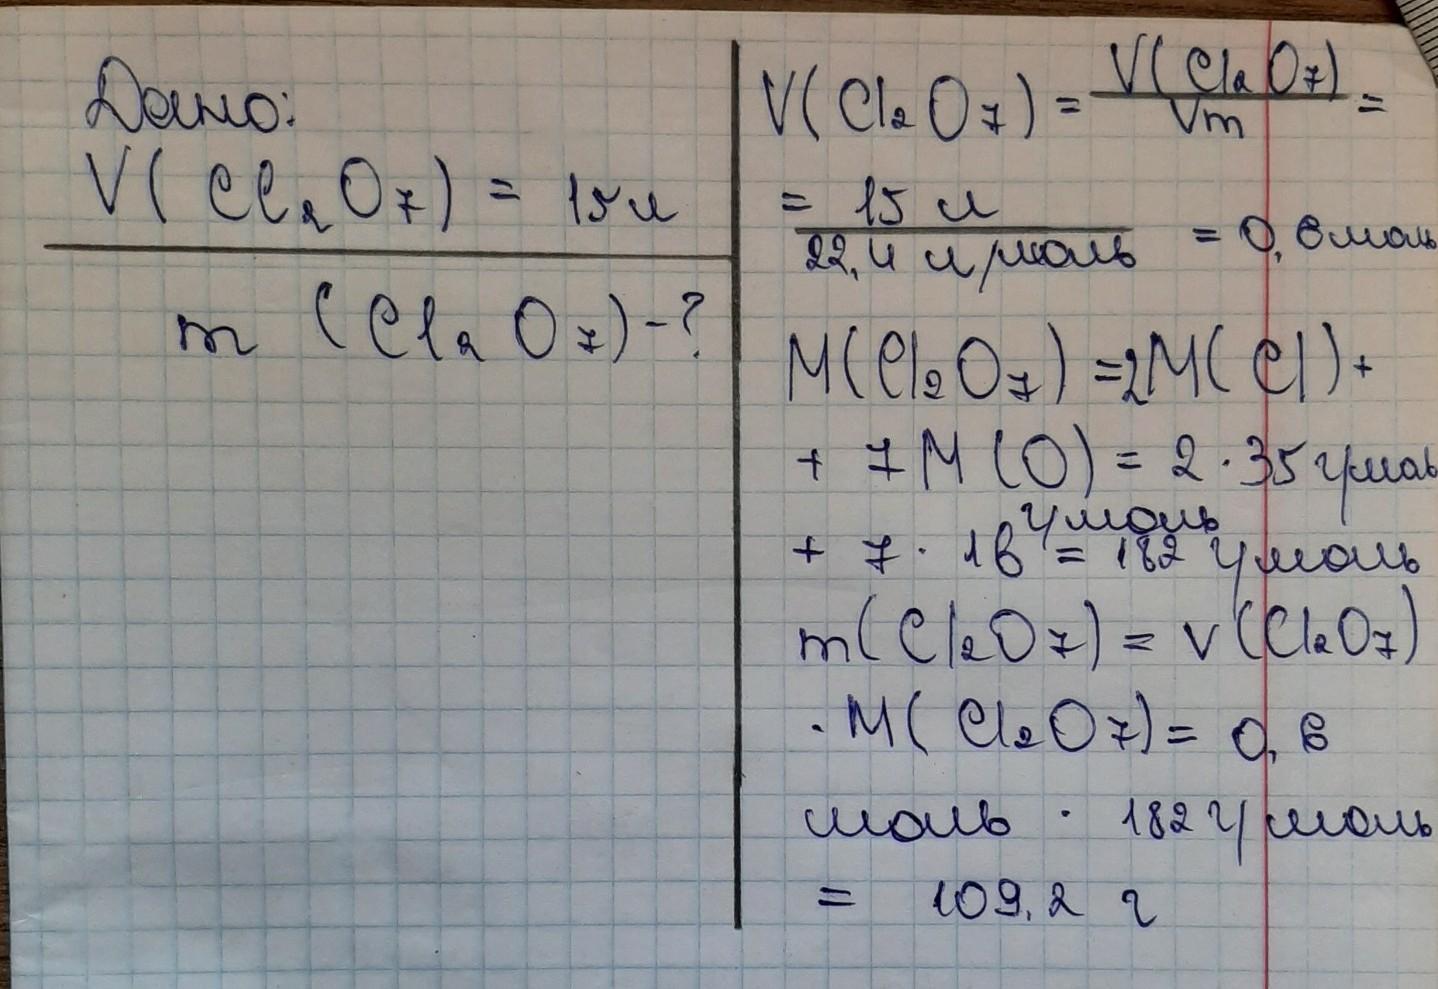 Дано:
V( Cl₂O₇) = 15 л
m (Cl₂O₇) - ?
V(Cl₂O₇) = V(Cl₂O₇) / Vm =
= 15 л / 22,4 л/моль = 0,6 моль
M(Cl₂O₇) = 2M(Cl) +
+ 7M(O) = 2 · 35 г/моль
+ 7 · 16 г/моль = 182 г/моль
m(Cl₂O₇) = v(Cl₂O₇)
· M(Cl₂O₇) = 0,6
моль · 182 г/моль
= 109,2 г